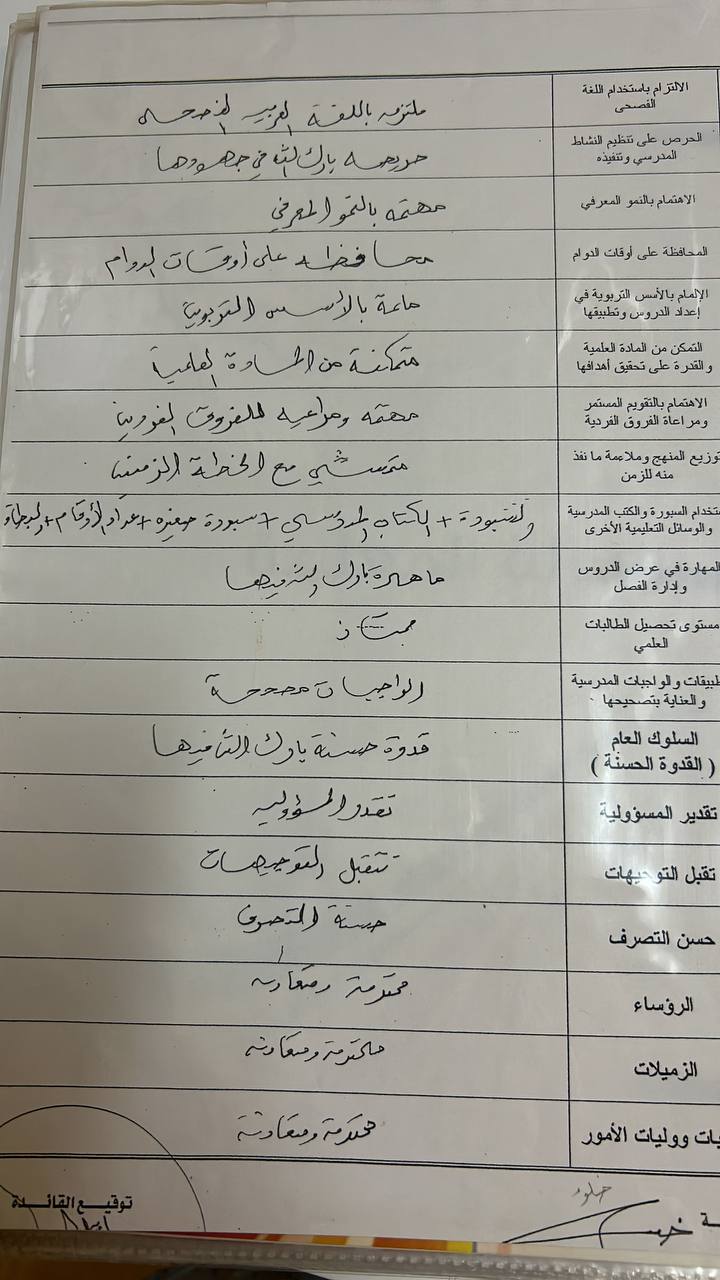 الالتزام باستخدام اللغة
الفصحى
ملتزمه باللغة العربيه الفصحى
الحرص على تنظيم النشاط
المدرسي وتنفيذه
حريصه بارك الله في جهودها
الاهتمام بالنمو المعرفي
مهتمه بالنمو المعرفي
المحافظة على أوقات الدوام
محافظه على أوقات الدوام
الإلمام بالأسس التربوية في
إعداد الدروس وتطبيقها
ملمة بالأسس التربوية
التمكن من المادة العلمية
والقدرة على تحقيق أهدافها
متمكنة من المادة العلمية
الاهتمام بالتقويم المستمر
ومراعاة الفروق الفردية
مهتمه ومراعيه للفروق الفردية
توزيع المنهج وملاءمة ما نفذ
منه للزمن
متمشي مع الخطة الزمنية
تخدام السبورة والكتب المدرسية
والوسائل التعليمية الأخرى
السبورة + الكتاب المدرسي + سبورة صغيره + عداد الأرقام +
المهارة في عرض الدروس
وإدارة الفصل
ماهرة بارك الله فيها
مستوى تحصيل الطالبات
العلمي
ممتاز
طبيقات والواجبات المدرسية
والعناية بتصحيحها
الواجبات مصححة
السلوك العام
( القدوة الحسنة )
قدوة حسنة بارك الله فيها
تقدير المسؤولية
تقدر المسؤوليه
تقبل التوجيهات
تتقبل التوجيهات
حسن التصرف
حسنة التصرف
الرؤساء
محترمة ومتعاونه
الزميلات
محترمة ومتعاونه
بات ووليات الأمور
محترمة ومتعاونة
خلود
توقيع القائدة